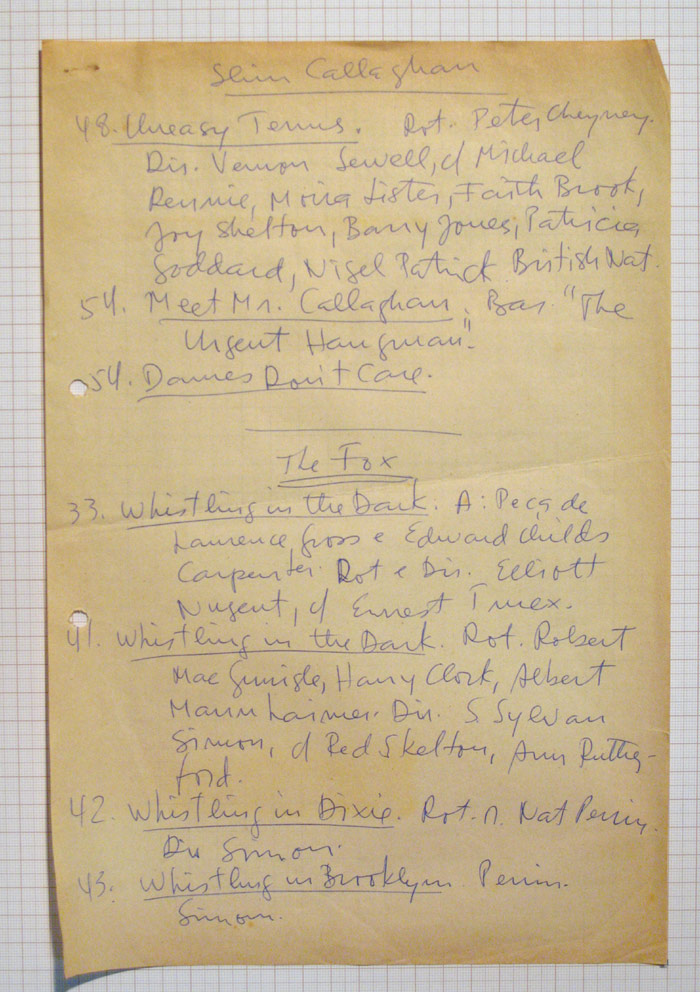 Slim Callaghan
48. Uneasy Terms. Rot. Peter Cheyney.
Dir. Vernon Sewell, c/ Michael
Rennie, Moira Lister, Faith Brook,
Joy Shelton, Barry Jones, Patricia
Goddard, Nigel Patrick. British Nat.
54. Meet Mr. Callaghan. Bas. "The
Urgent Hangman".
54. Dames Don't Care.
The Fox
33. Whistling in the Dark. A: Peça de
Laurence Gross e Edward Childs
Carpenter. Rot e Dir. Elliott
Nugent, c/ Ernest Truex.
41. Whistling in the Dark. Rot. Robert
Mac Gunigle, Harry Clork, Albert
Mannheimer. Dir. S. Sylvan
Simon, c/ Red Skelton, Ann Ruther-
ford.
42. Whistling in Dixie. Rot. Nat Perrin.
Dir Simon.
43. Whistling in Brooklyn. Perrin.
Simon.